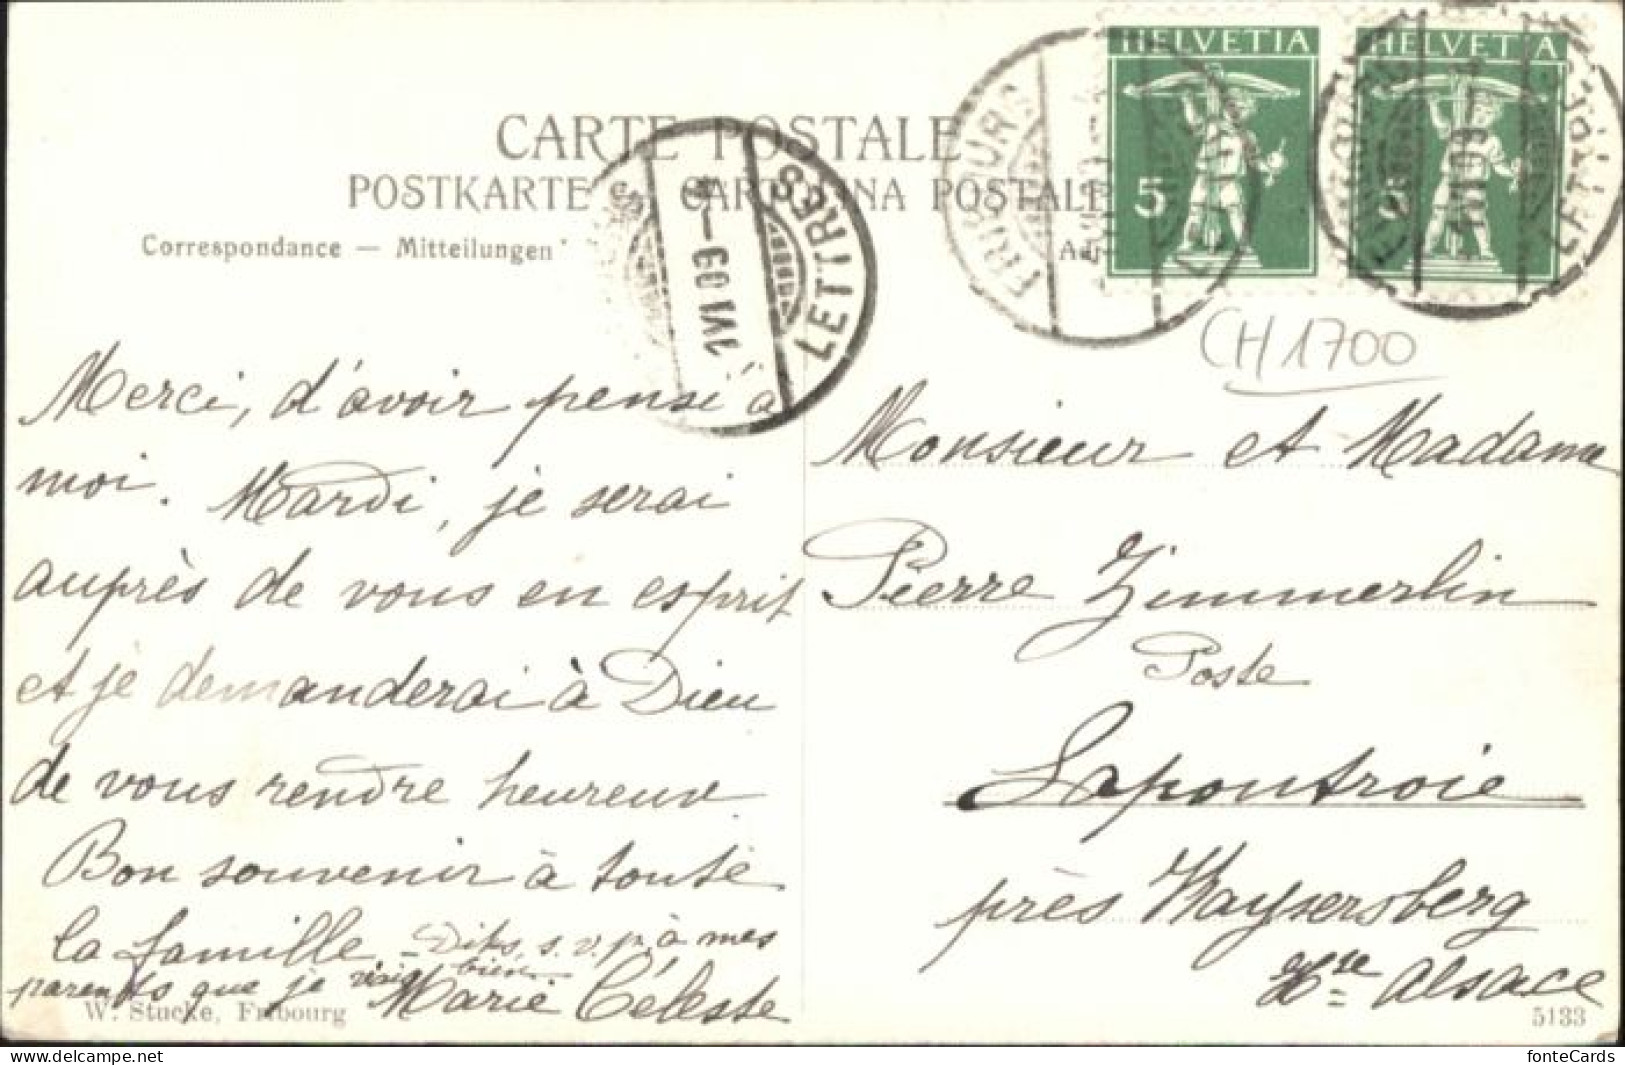 CARTE POSTALE
POSTKARTE CARTOLINA POSTALE
Correspondance — Mitteilungen
HELVETIA
5
HELVETIA
5
FRIBOURG
LETTRES
1 VII 09
LETTRES
CH 1700
Merci, d'avoir pensé à
moi. Mardi, je serai
auprès de vous en esprit
et je demanderai à Dieu
de vous rendre heureux.
Bon souvenir à toute
la famille – Dites, s.v.p. à mes
parents que je vais bien
Marie Céleste
Monsieur et Madame
Pierre Zimmerlin
Poste
Lapoutroie
près Kaysersberg
Hte Alsace
W. Stucke, Fribourg
5133
fonteCards